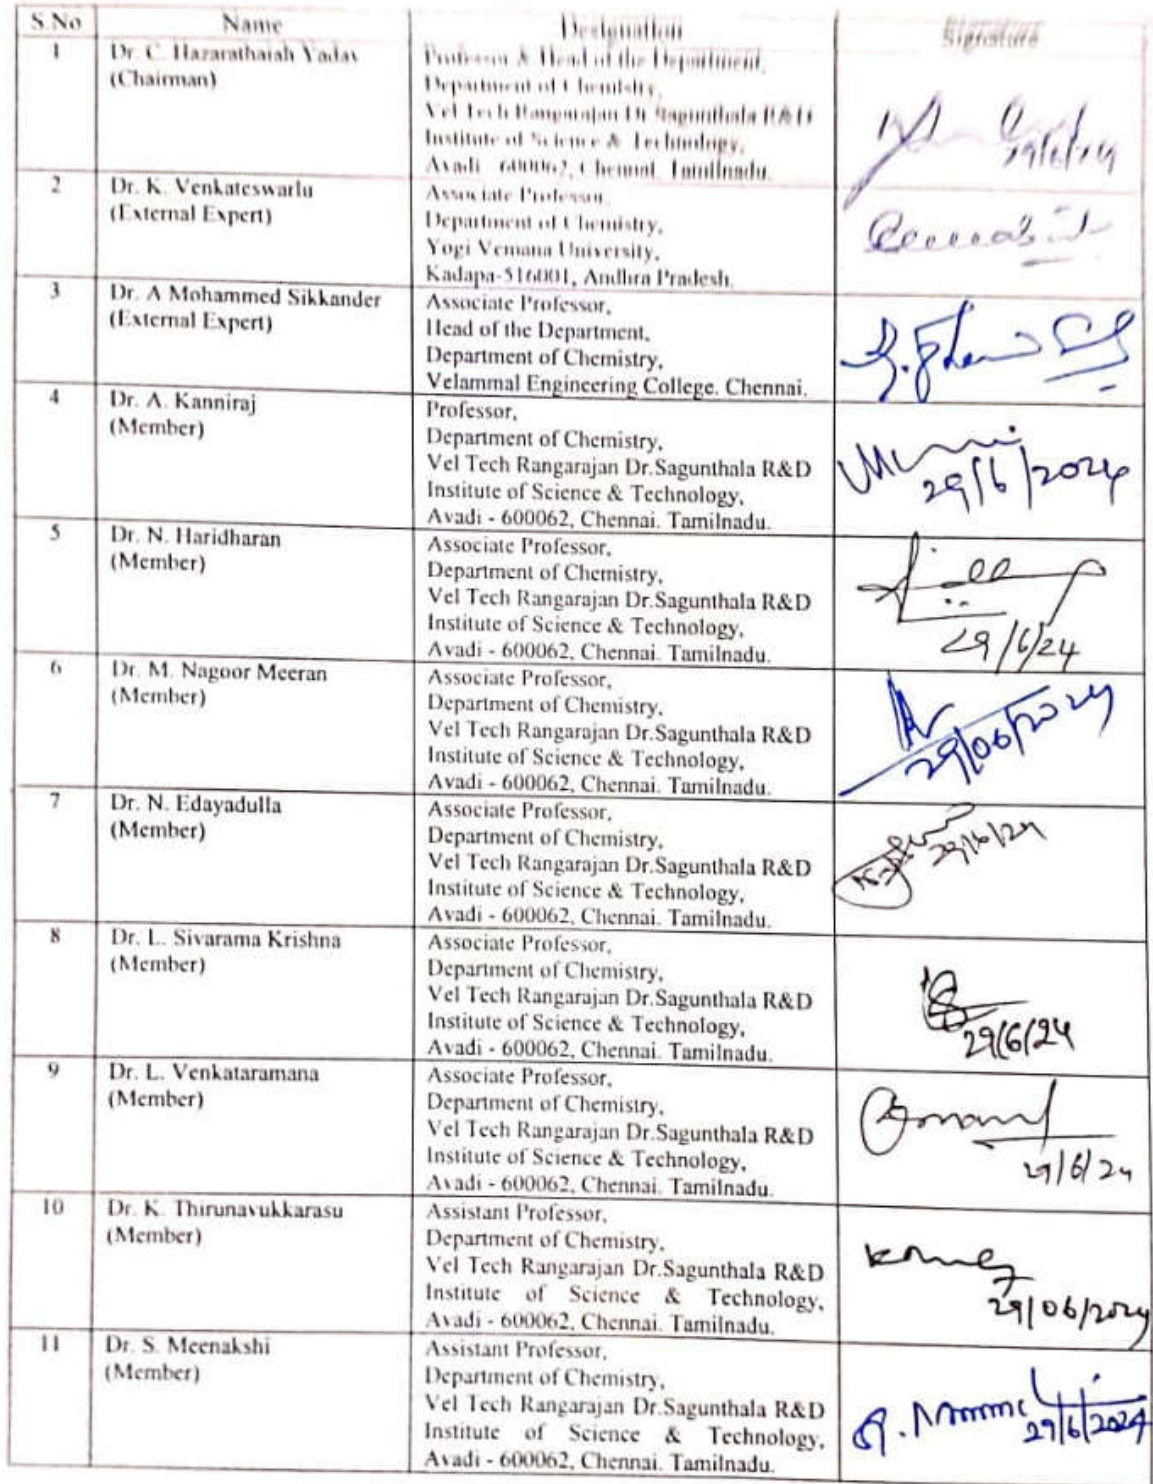 S.No Name Designation Signature
1 Dr. C. Hazarathaiah Yadav
(Chairman)
Professor & Head of the Department,
Department of Chemistry,
Vel Tech Rangarajan Dr Sagunthala R&D
Institute of Science & Technology,
Avadi - 600062, Chennai. Tamilnadu.
29/6/24
2 Dr. K. Venkateswarlu
(External Expert)
Associate Professor,
Department of Chemistry,
Yogi Vemana University,
Kadapa-516001, Andhra Pradesh.
3 Dr. A Mohammed Sikkander
(External Expert)
Associate Professor,
Head of the Department,
Department of Chemistry,
Velammal Engineering College. Chennai.
4 Dr. A. Kanniraj
(Member)
Professor,
Department of Chemistry,
Vel Tech Rangarajan Dr.Sagunthala R&D
Institute of Science & Technology,
Avadi - 600062, Chennai. Tamilnadu.
29/6/2024
5 Dr. N. Haridharan
(Member)
Associate Professor,
Department of Chemistry,
Vel Tech Rangarajan Dr.Sagunthala R&D
Institute of Science & Technology,
Avadi - 600062, Chennai. Tamilnadu.
29/6/24
6 Dr. M. Nagoor Meeran
(Member)
Associate Professor,
Department of Chemistry,
Vel Tech Rangarajan Dr.Sagunthala R&D
Institute of Science & Technology,
Avadi - 600062, Chennai. Tamilnadu.
29/06/2024
7 Dr. N. Edayadulla
(Member)
Associate Professor,
Department of Chemistry,
Vel Tech Rangarajan Dr.Sagunthala R&D
Institute of Science & Technology,
Avadi - 600062, Chennai. Tamilnadu.
29/6/24
8 Dr. L. Sivarama Krishna
(Member)
Associate Professor,
Department of Chemistry,
Vel Tech Rangarajan Dr.Sagunthala R&D
Institute of Science & Technology,
Avadi - 600062, Chennai. Tamilnadu.
29/6/24
9 Dr. L. Venkataramana
(Member)
Associate Professor,
Department of Chemistry,
Vel Tech Rangarajan Dr.Sagunthala R&D
Institute of Science & Technology,
Avadi - 600062, Chennai. Tamilnadu.
29/6/24
10 Dr. K. Thirunavukkarasu
(Member)
Assistant Professor,
Department of Chemistry,
Vel Tech Rangarajan Dr.Sagunthala R&D
Institute of Science & Technology,
Avadi - 600062, Chennai. Tamilnadu.
29/06/2024
11 Dr. S. Meenakshi
(Member)
Assistant Professor,
Department of Chemistry,
Vel Tech Rangarajan Dr.Sagunthala R&D
Institute of Science & Technology,
Avadi - 600062, Chennai. Tamilnadu.
29/6/2024